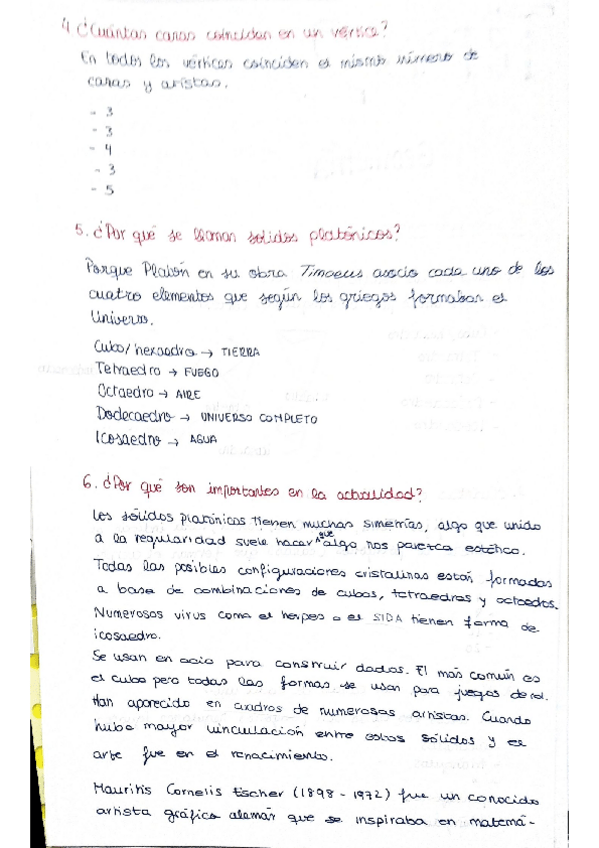 4. ¿Cuántas caras coinciden en un vértice?
En todos los vértices coinciden el mismo número de
caras y aristas.
- 3
- 3
- 4
- 3
- 5
5. ¿Por qué se llaman sólidos platónicos?
Porque Platón en su obra Timaeus asocio cada uno de los
cuatro elementos que según los griegos formaban el
Universo.
Cubo/hexaedro → TIERRA
Tetraedro → FUEGO
Octaedro → AIRE
Dodecaedro → UNIVERSO COMPLETO
Icosaedro → AGUA
6. ¿Por qué son importantes en la actualidad?
Los sólidos platónicos tienen muchas simetrías, algo que unido
a la regularidad suele hacer que algo nos parezca estético.
Todas las posibles configuraciones cristalinas están formadas
a base de combinaciones de cubos, tetraedros y octaedros.
Numerosos virus como el herpes o el SIDA tienen forma de
icosaedro.
Se usan en ocio para construir dados. El más común es
el cubo pero todas las formas se usan para juegos de rol.
Han aparecido en cuadros de numerosos artistas. Cuando
hubo mayor vinculación entre estos sólidos y el
arte fue en el renacimiento.
Maurits Cornelis Escher (1898 - 1972) fue un conocido
artista gráfico alemán que se inspiraba en matemá-